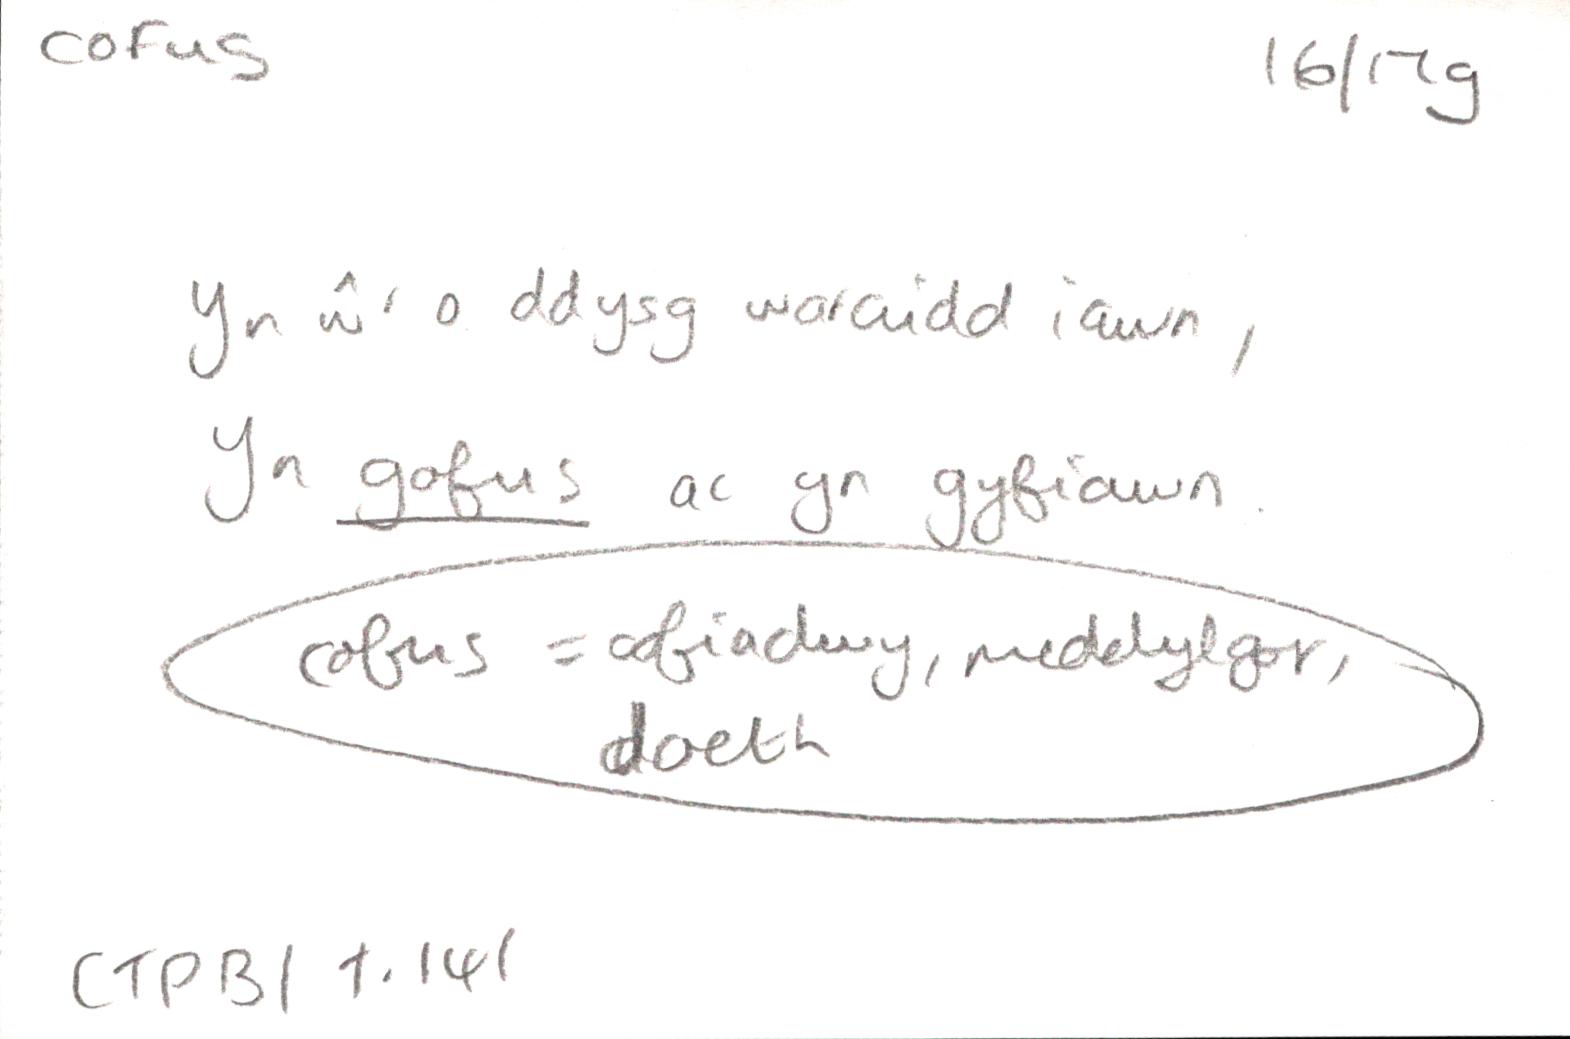 cofus 16/17g
Yn ŵr o ddysg waraidd iawn,
Yn gofus ac yn gyfiawn.
cofus = cofiadwy, meddylgar,
doeth
CTPB1 t.141